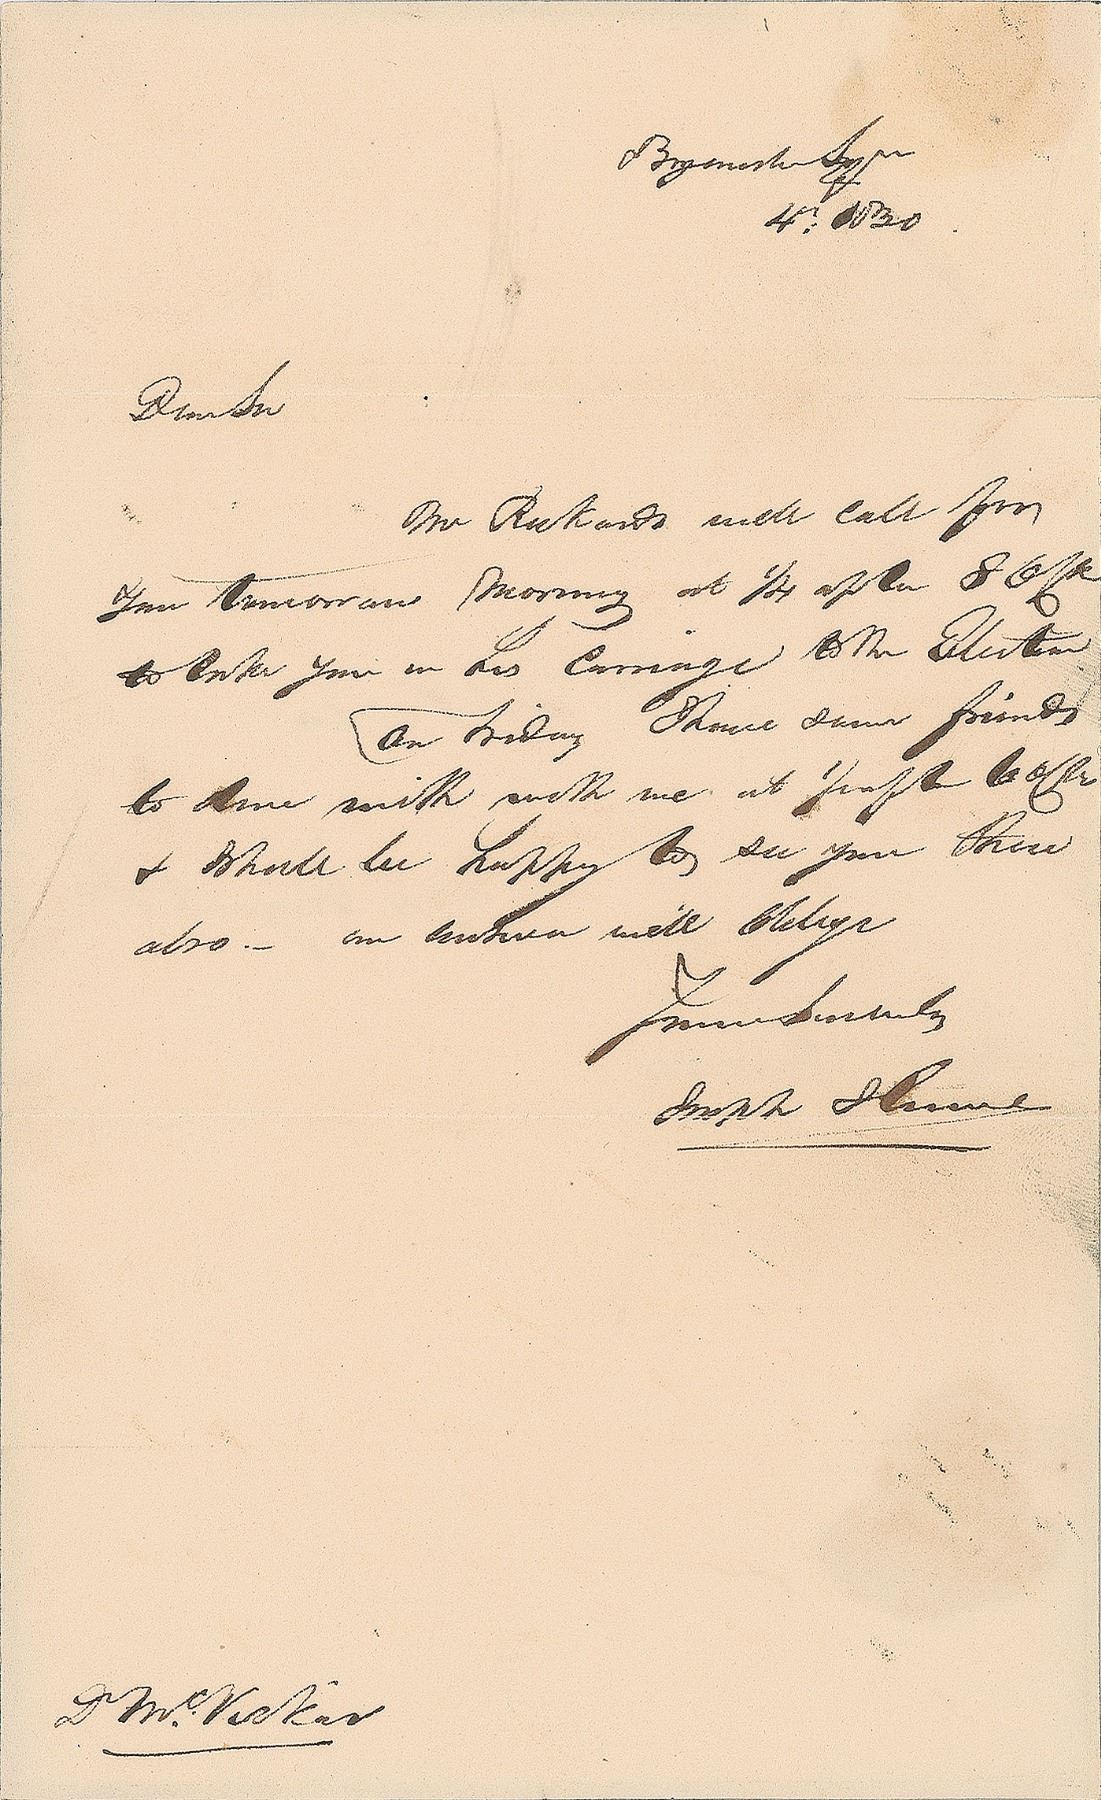 Bryanston Sqr
4th 1830
Dear Sir
Mr Rickards will call for
you tomorrow Morning at 1/4 after 8 OClk
to take you in his Carriage to the Election
On Friday I have some friends
to dine with with me at 1/2 aft 6 oClk
& Should be happy to see you there
also - an answer will Oblige
Yours Sincerely
Joseph Hume
Dr Mc. Vickar